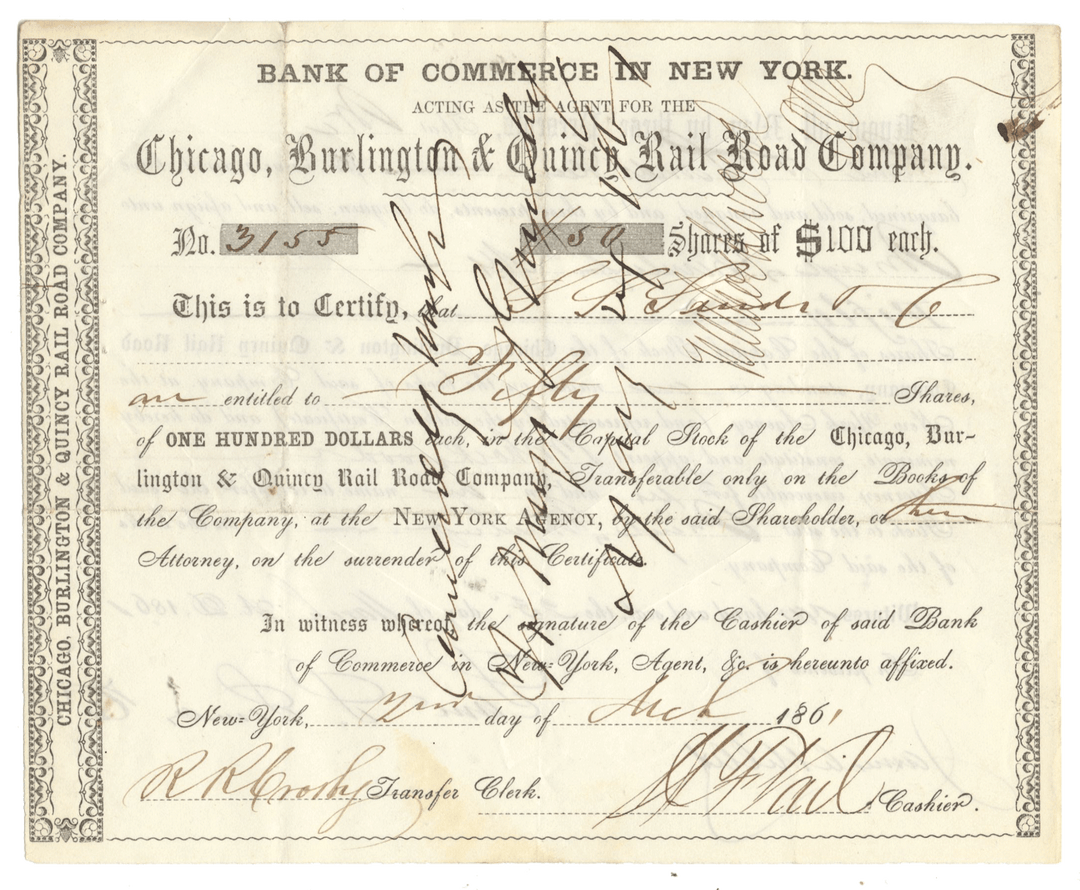 BANK OF COMMERCE IN NEW YORK.
ACTING AS THE AGENT FOR THE
Chicago, Burlington & Quincy Rail Road Company.
No. 3155 50 Shares of $100 each.
This is to Certify, that
are entitled to Fifty Shares,
of ONE HUNDRED DOLLARS each, in the Capital Stock of the Chicago, Bur-
lington & Quincy Rail Road Company, Transferable only on the Books of
the Company, at the NEW YORK AGENCY, by the said Shareholder, or their
Attorney, on the surrender of this Certificate.
In witness whereof, the signature of the Cashier of said Bank
of Commerce in New-York, Agent, &c. is hereunto affixed.
New-York, 2nd day of Mch 1861
R R Crosby Transfer Clerk.
H F Vail Cashier.
CHICAGO, BURLINGTON & QUINCY RAIL ROAD COMPANY.